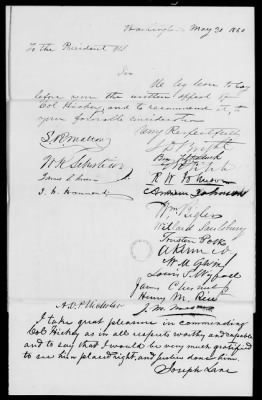 Washington May 30 1860
To the President US.
Sir
We beg leave to lay
before you the written appeal of
Col Hickey, and to recommend it, to
your favorable consideration
Very Respectfully
S. R. Mallory
J D Bright
Ben Fitzpatrick
W. K. Sebastian
R W Johnson
James S. Green
Andrew Johnson
Wm Bigler
Willard Saulsbury
Trusten Polk
W M Gwin
Louis T. Wigfall
James Chesnut Jr
Henry M. Rice
J. M. Mason
A. O. P. Nicholson
I take great pleasure in commending
Col Hickey as in all respects worthy and capable
and to say that I would be very much gratified
to see him placed right, and justice done him.
Joseph Lane